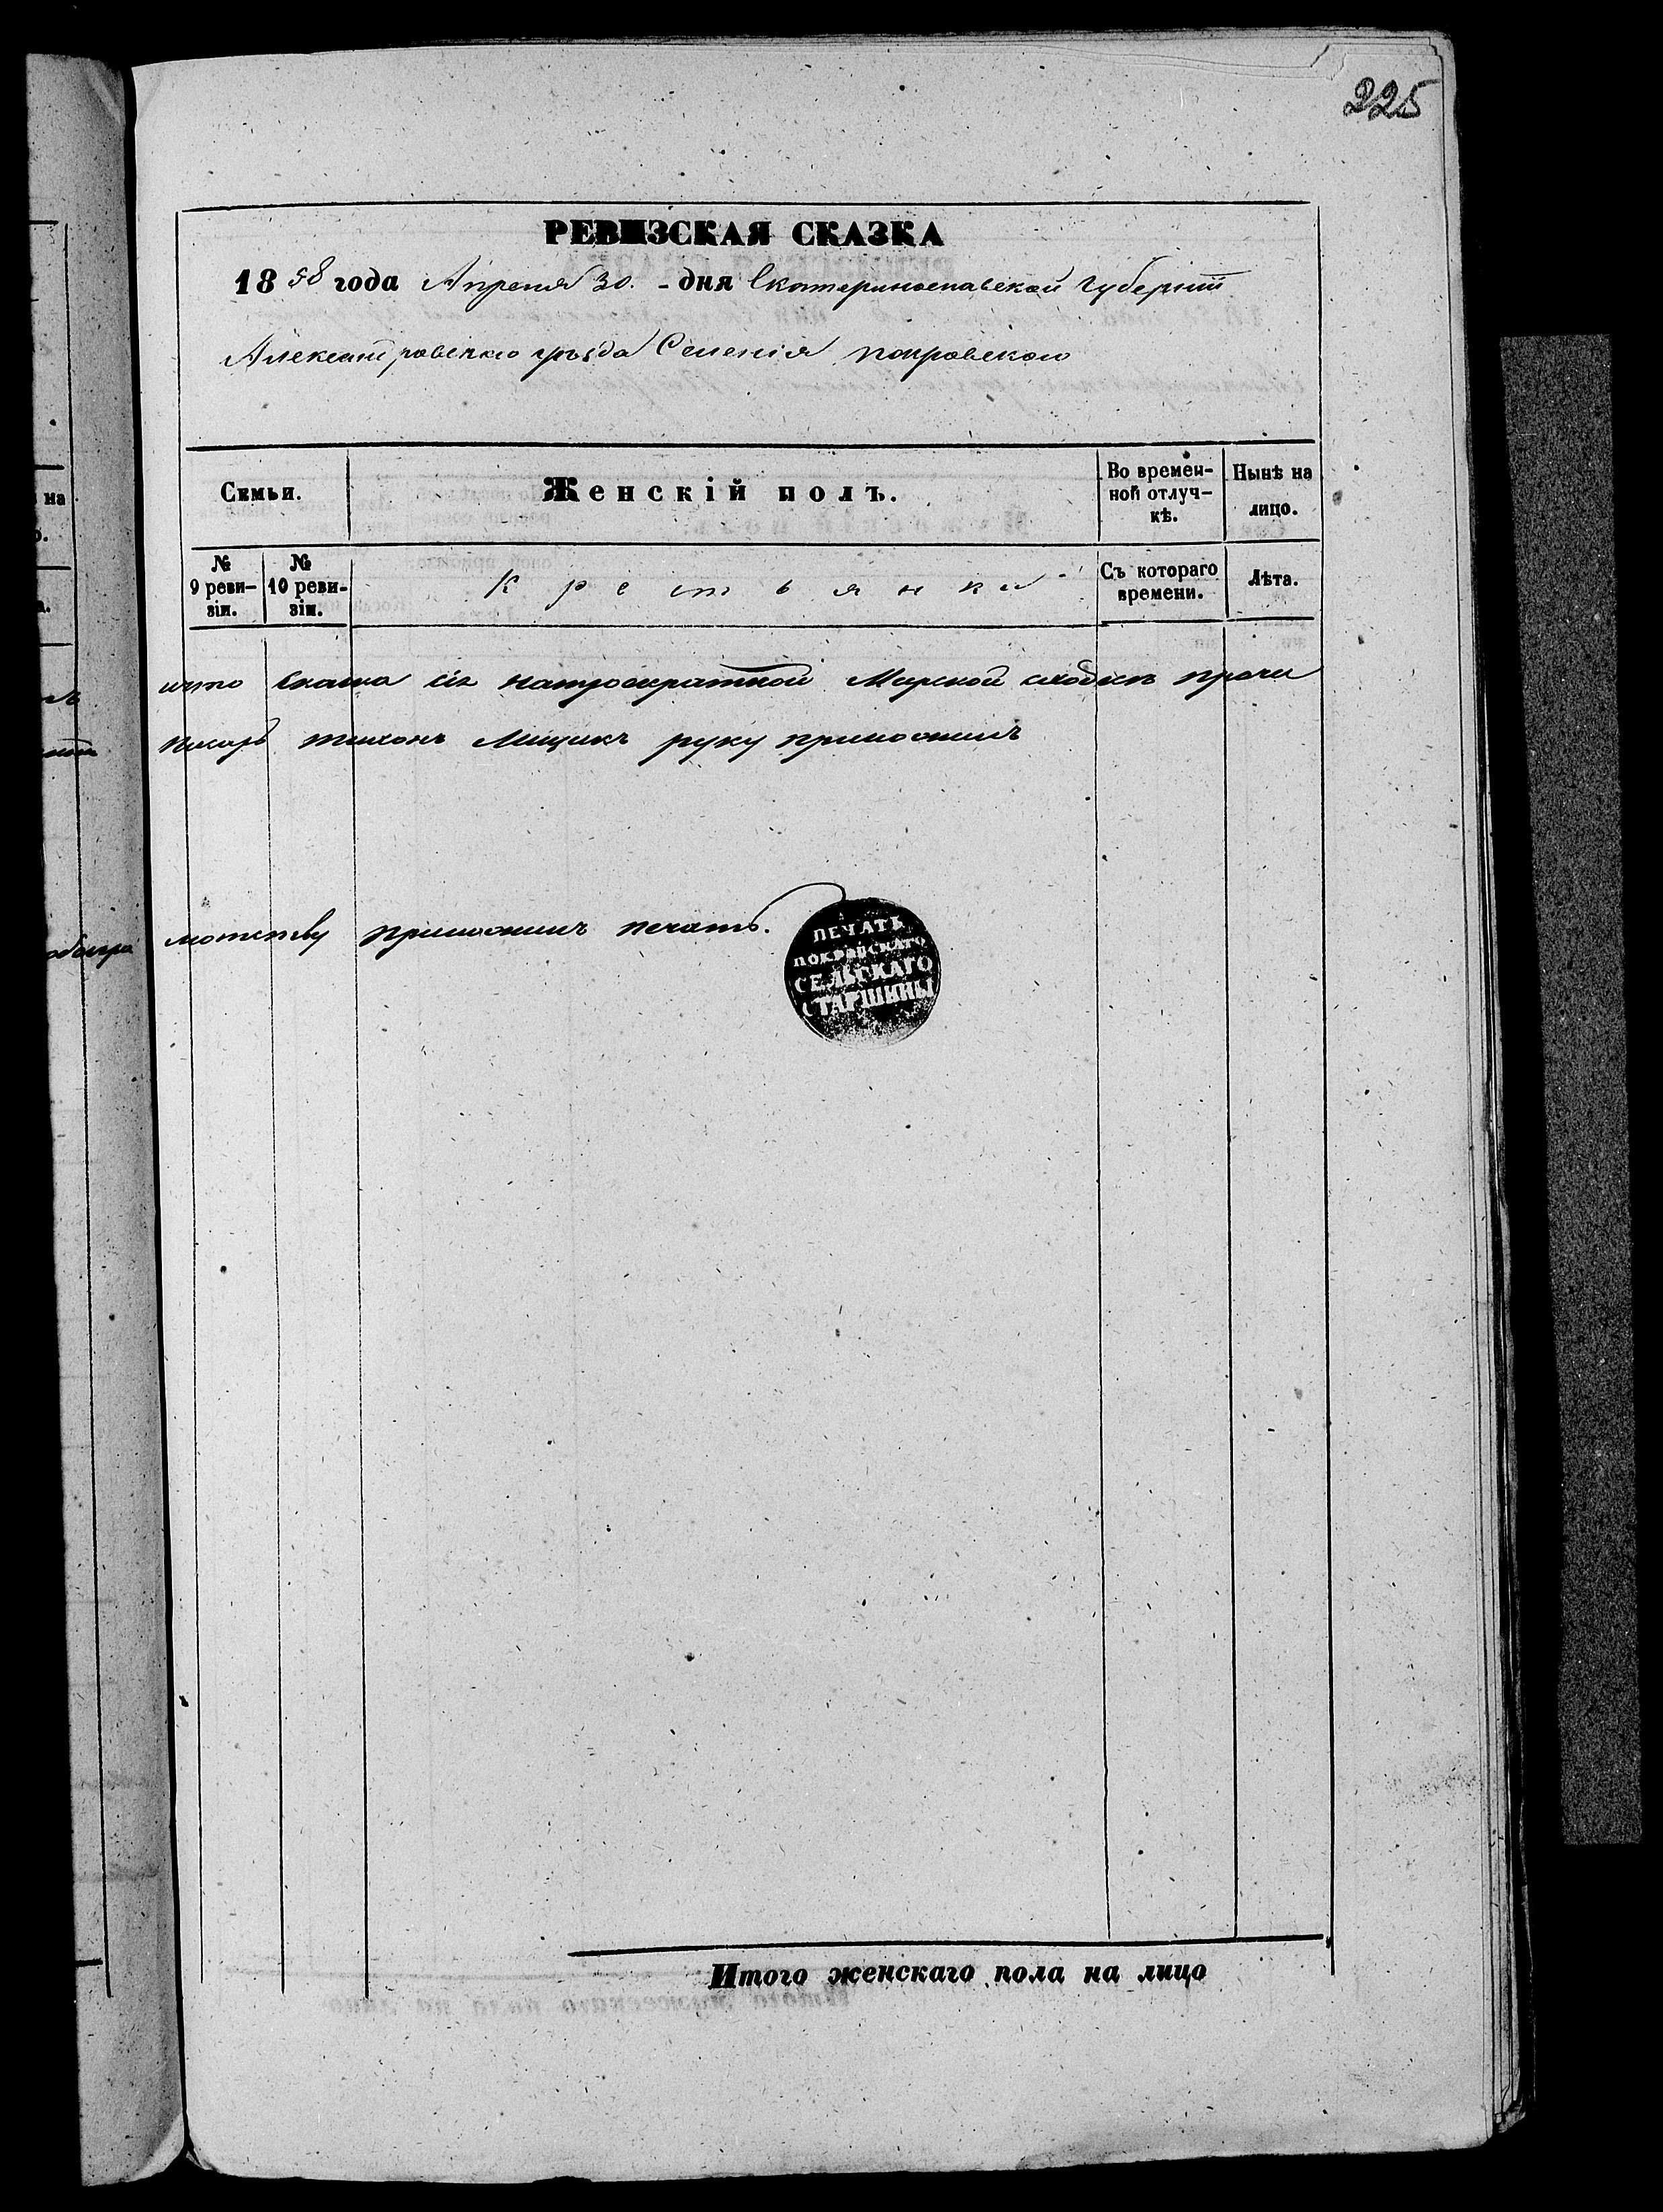 225
РЕВИЗСКАЯ СКАЗКА
1858 года Апреля 30. - дня Екатеринославской Губерніи
Александровскаго уѣзда Селенія покровскаго
Семьи.
Женскій полъ.
Во времен-
ной отлуч-
кѣ.
Нынѣ на
лицо.
№
9 реви-
зіи.
№
10 реви-
зіи.
Крестьянки
Съ котораго
времени.
Лѣта.
что Сказка сія на Мирской сходкѣ прочи
писарь тихонъ Мищикъ руку приложилъ
приложилъ печать.
ПЕЧАТЬ
ПОКРОВСКАГО
СЕЛЬСКАГО
СТАРШИНЫ
Итого женскаго пола на лицо